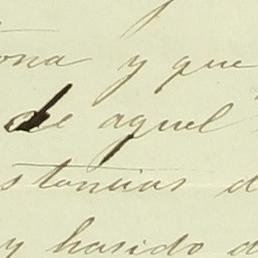 ona y que
de aquel
stancias d
y hasido d